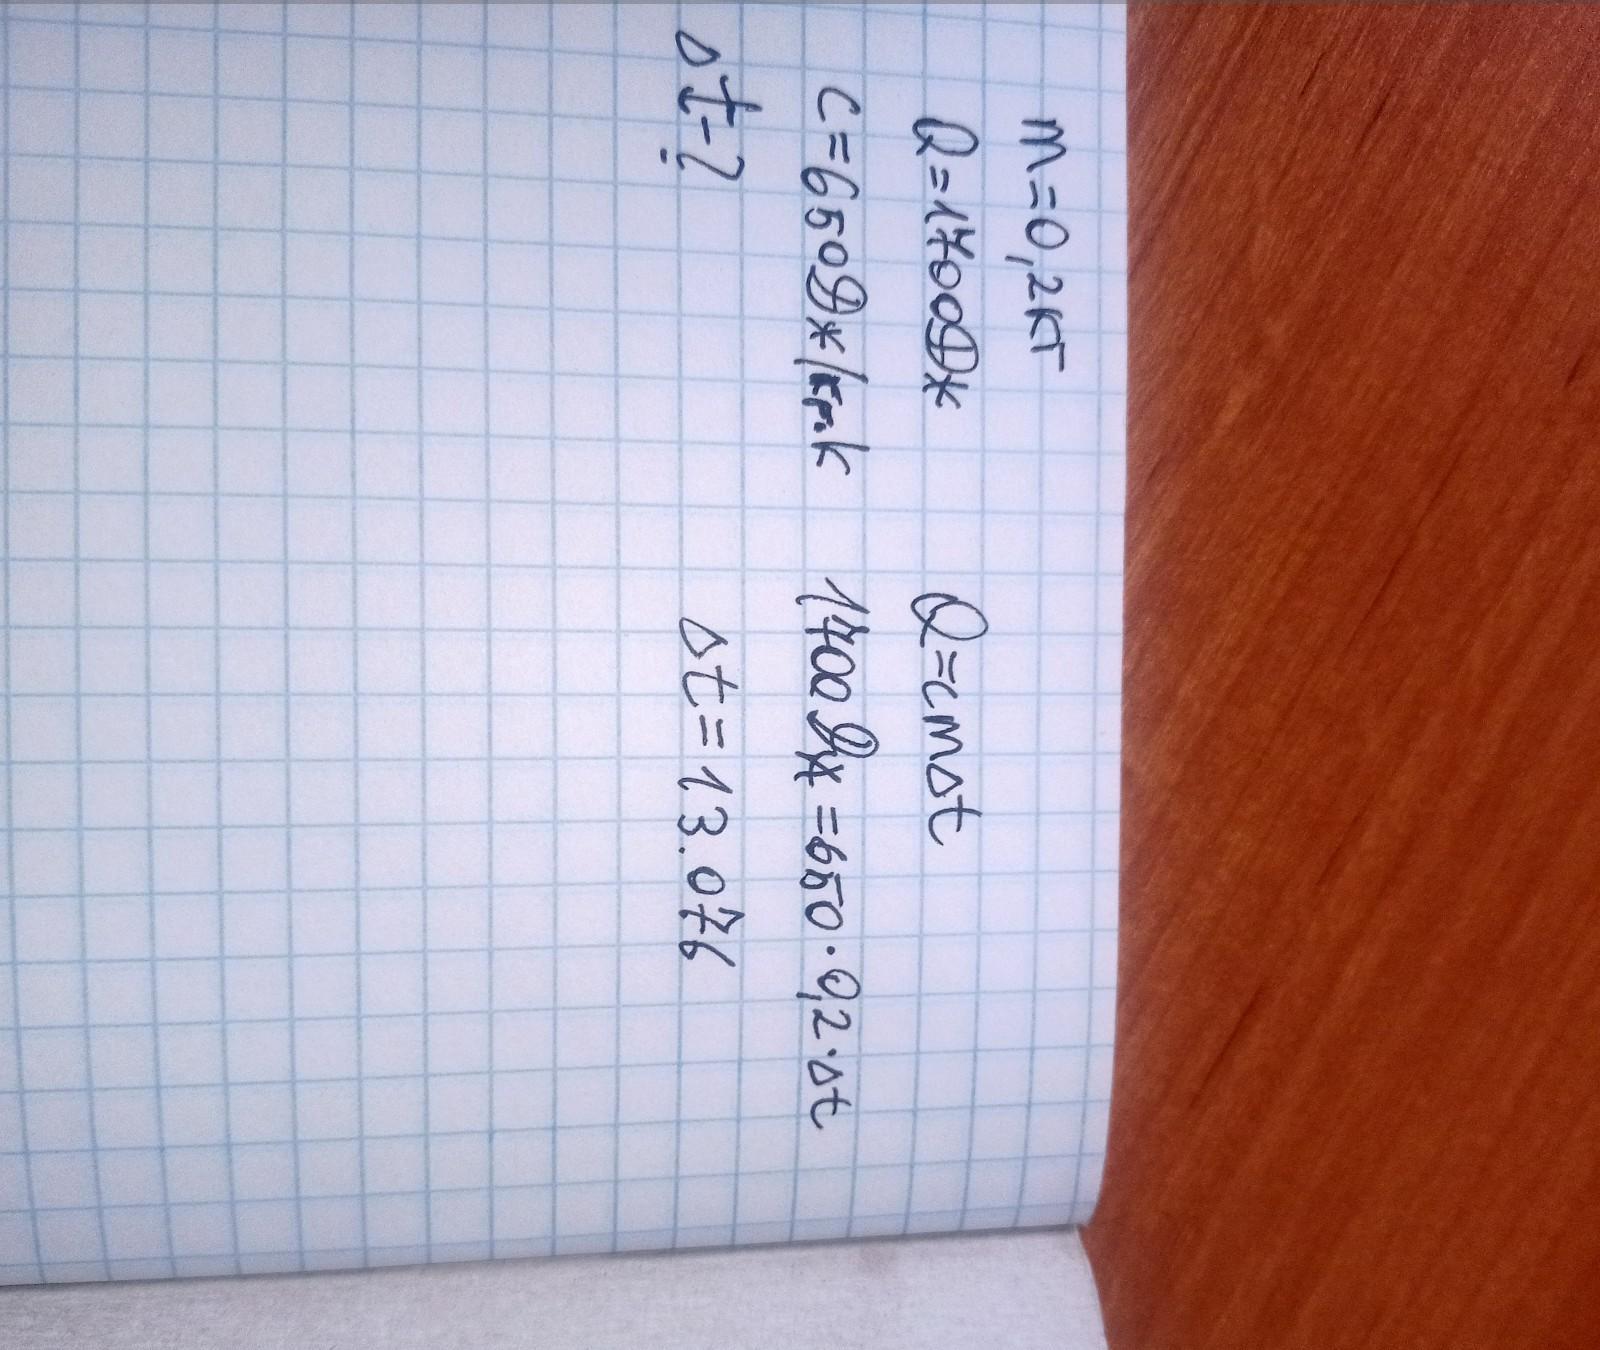 m=0,2кг
Q=1700Дж
c=650Дж/кг.k
Δt-?
Q=cmΔt
1700Дж=650·0,2·Δt
Δt=13.076